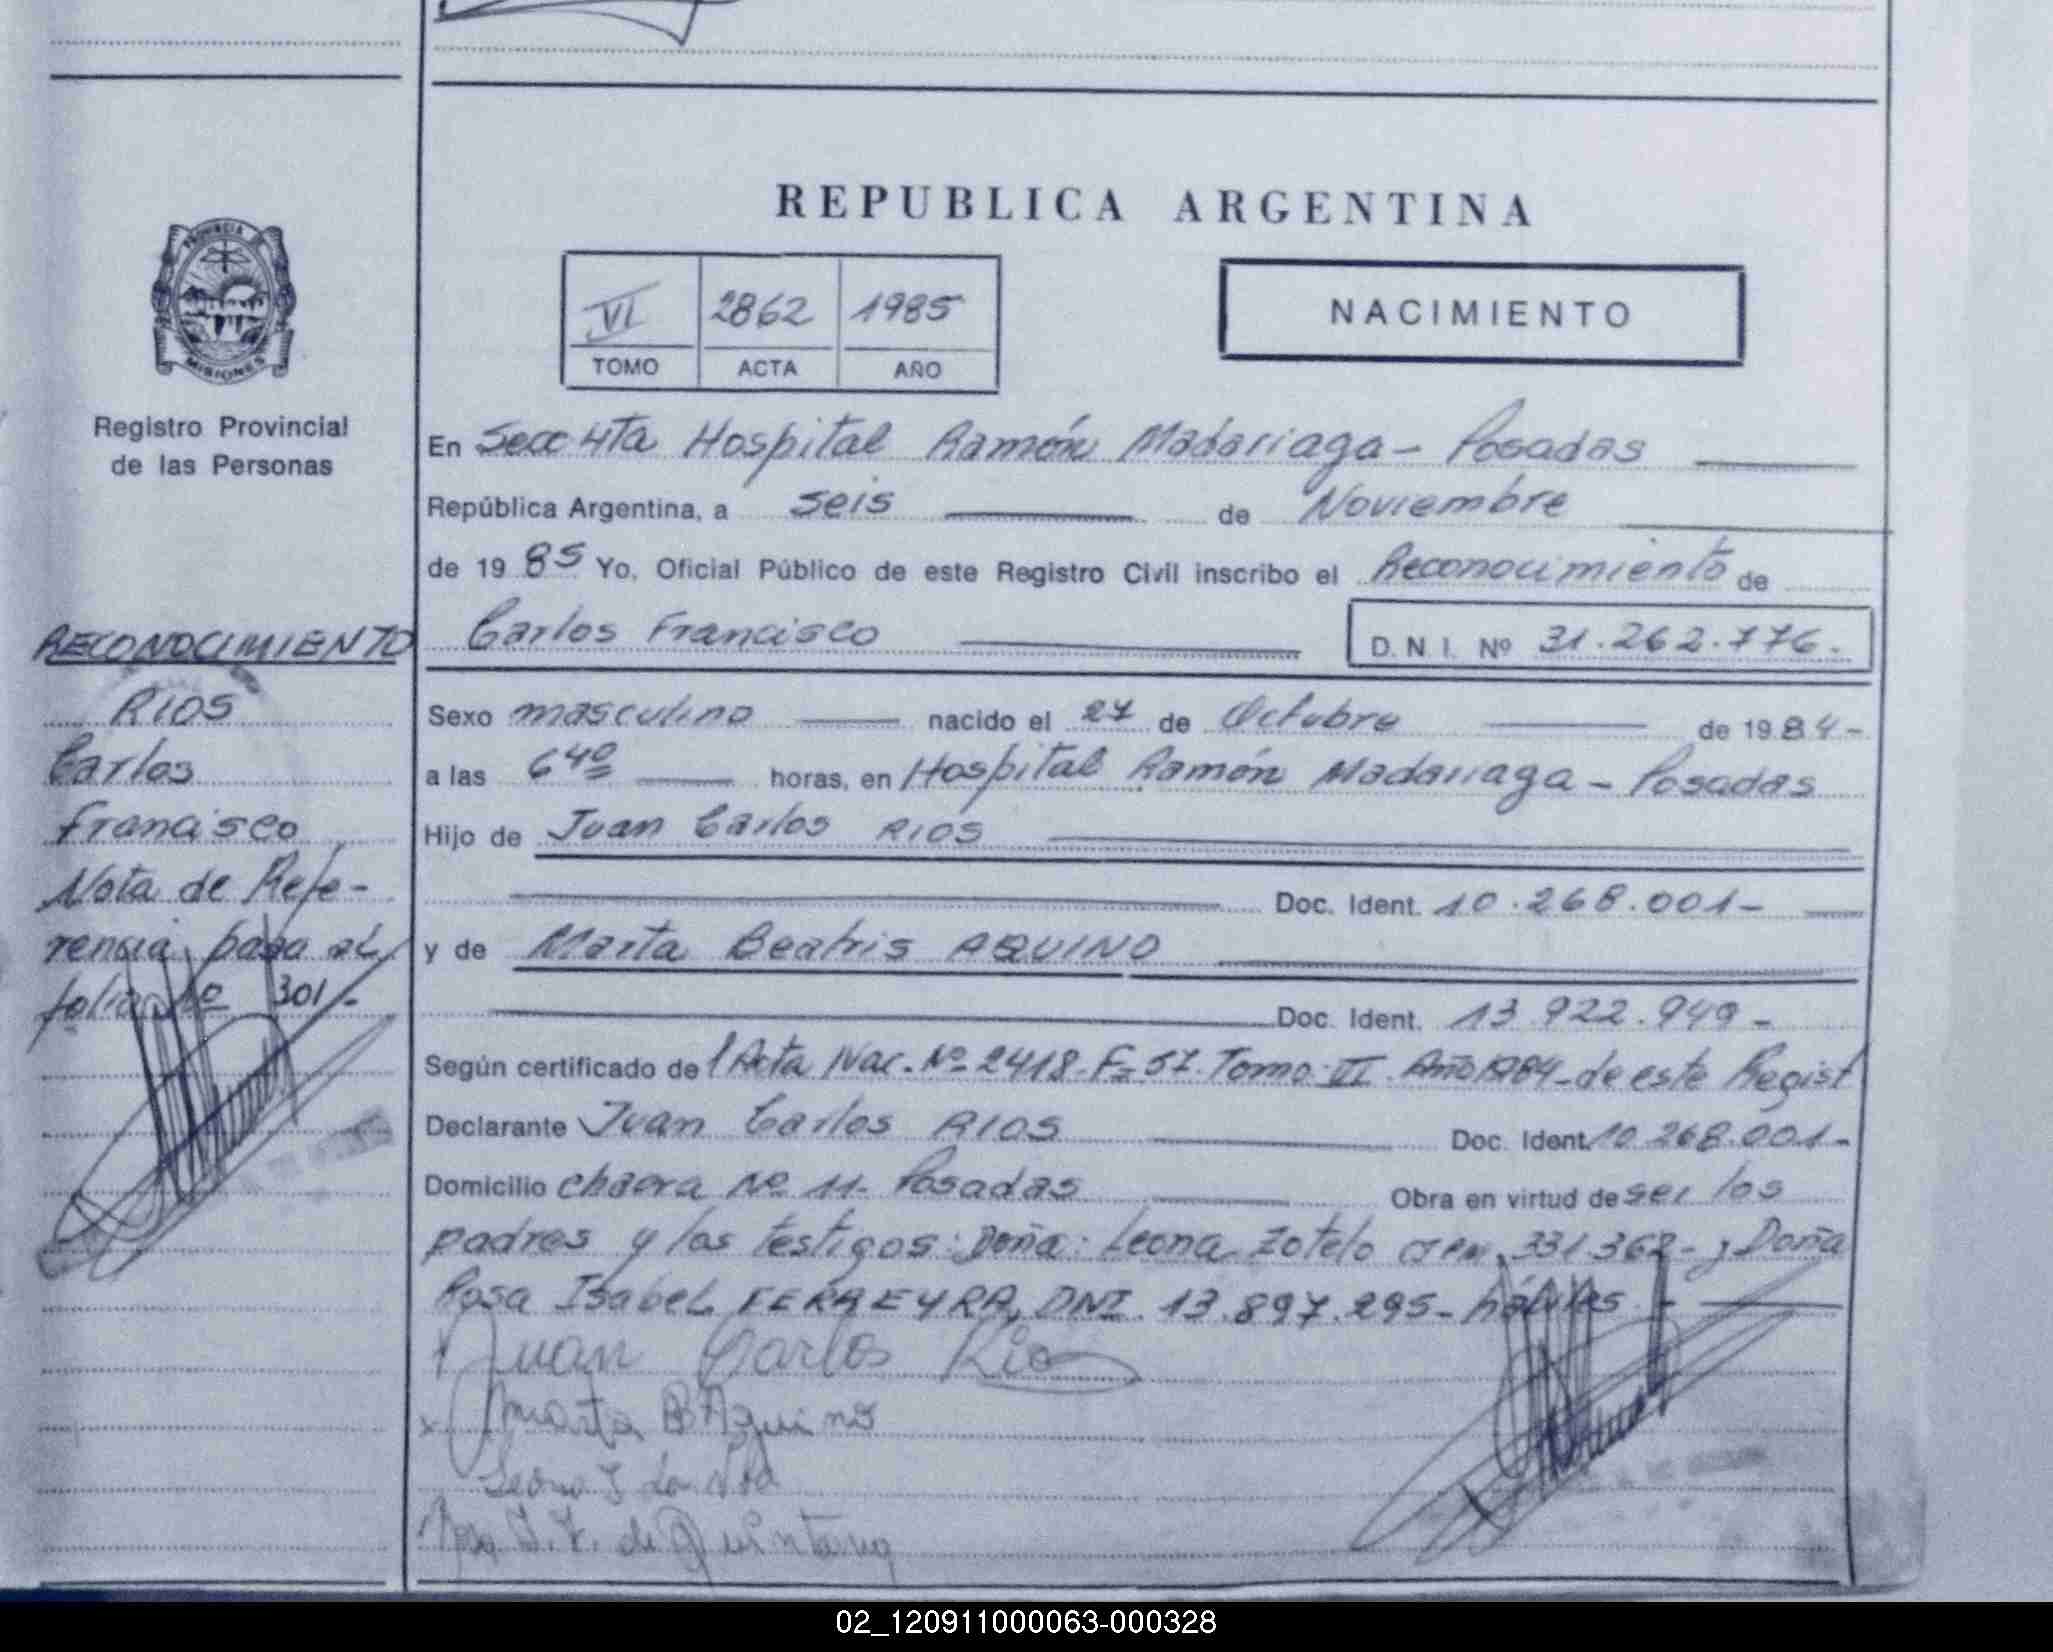 REPUBLICA ARGENTINA
VI 2862 1985
TOMO ACTA AÑO
NACIMIENTO
PROVINCIA DE
MISIONES
Registro Provincial
de las Personas
RECONOCIMIENTO
RIOS
Carlos
Francisco
Nota de Refe-
rencia pasa al
folio Nº 301-
En Secc 4ta Hospital Ramón Madariaga - Posadas
República Argentina, a seis de Noviembre
de 1985 Yo, Oficial Público de este Registro Civil inscribo el Reconocimiento de
Carlos Francisco D. N. I. Nº 31.262.776.-
Sexo masculino nacido el 27 de Octubre de 1984-
a las 6 40 horas, en Hospital Ramón Madariaga - Posadas
Hijo de Juan Carlos RIOS
Doc. Ident. 10.268.001-
y de Marta Beatris AQUINO
Doc. Ident. 13.922.949-
Según certificado del Acta Nac. Nº 2418. Fº 57. Tomo VI. Año 1984- de este Regist
Declarante Juan Carlos RIOS Doc. Ident. 10.268.001-
Domicilio chacra Nº 11- Posadas Obra en virtud de ser los
padres y los testigos: Doña: Leona Zotelo 331.362- y Doña
Rosa Isabel FERREYRA, DNI. 13.897.295- hábiles.-
Juan Carlos Rios
x Marta B Aquino
Leona
Rosa I. F. de Quintana
02_120911000063-000328